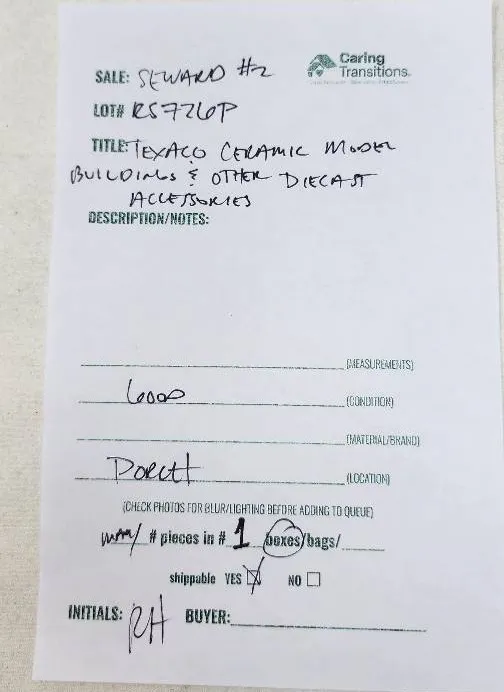 Caring
Transitions
SALE: SEWARD #2
LOT# RS726P
TITLE: TEXACO CERAMIC MODEL
BUILDINGS & OTHER DIECAST
ACCESSORIES
DESCRIPTION/NOTES:
(MEASUREMENTS)
GOOD (CONDITION)
(MATERIAL/BRAND)
PORCH (LOCATION)
(CHECK PHOTOS FOR BLUR/LIGHTING BEFORE ADDING TO QUEUE)
MANY # pieces in # 1 boxes/bags/
shippable YES NO
INITIALS: RH BUYER: